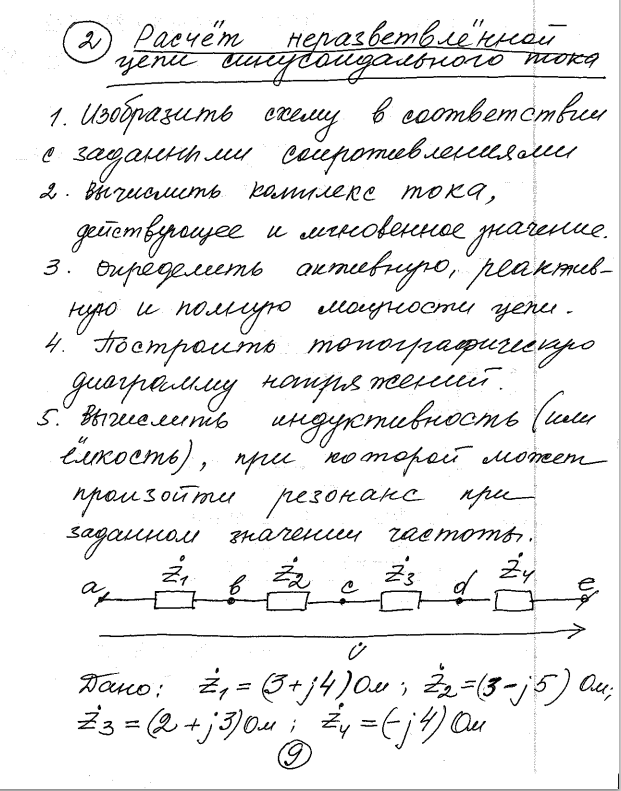 2 Расчёт неразветвлённой
цепи синусоидального тока
1. Изобразить схему в соответствии
с заданными сопротивлениями
2. Вычислить комплекс тока,
действующее и мгновенное значение.
3. Определить активную, реактив-
ную и полную мощности цепи.
4. Построить топографическую
диаграмму напряжений.
5. Вычислить индуктивность (или
ёмкость), при которой может
произойти резонанс при
заданном значении частоты.
a Ż1 b Ż2 c Ż3 d Ż4 e
U̇
Дано: Ż1 = (3+j4) Ом; Ż2=(3-j5) Ом;
Ż3 = (2+j3) Ом; Ż4 = (-j4) Ом
9